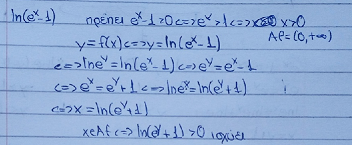 ln(eˣ-1) πρέπει eˣ-1>0 <=> eˣ>1 <=> x>0
Af=(0,+∞)
y=f(x) <=> y=ln(eˣ-1)
<=> lneʸ=ln(eˣ-1) <=> eʸ=eˣ-1
<=> eˣ=eʸ+1 <=> lneˣ=ln(eʸ+1)
<=> x=ln(eʸ+1)
x∈Af <=> ln(eʸ+1)>0 ισχύει